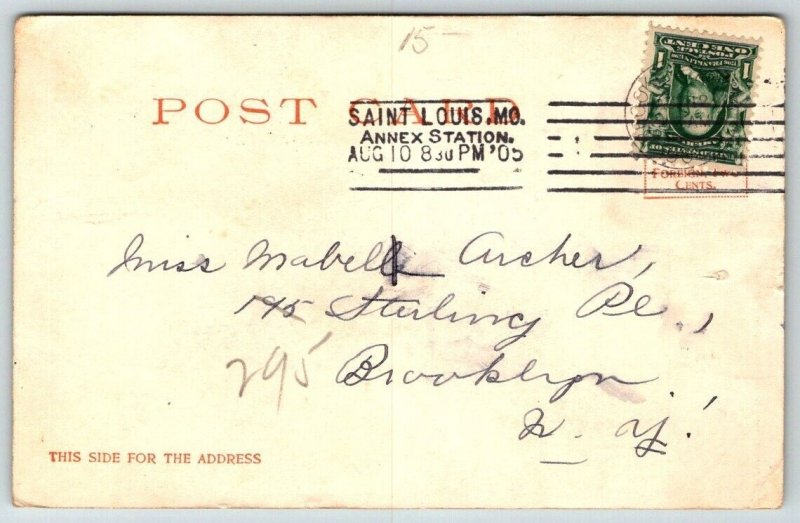 15-
POST CARD
SAINT LOUIS. MO.
ANNEX STATION.
AUG 10 830 PM '05
ONE CENT
POSTAGE
1 1
FOREIGN, TWO
CENTS.
Miss Mabelle Archer,
195 Sterling Pl.,
295
Brooklyn
N. Y.
THIS SIDE FOR THE ADDRESS